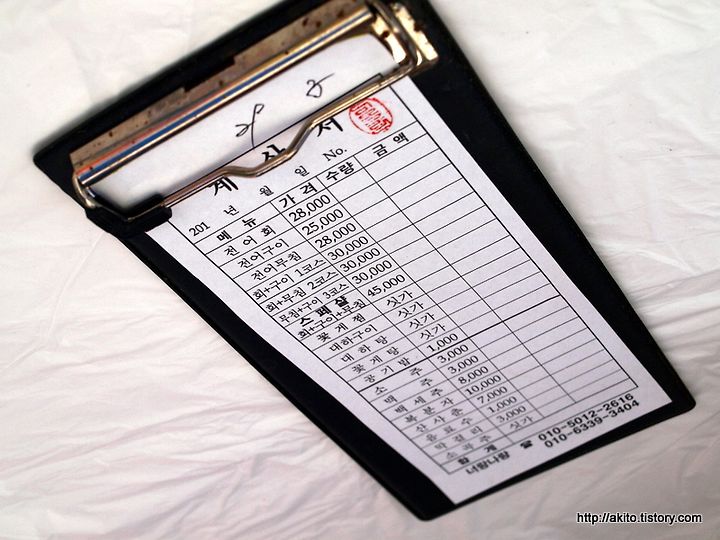 계산서
201 년 월 일 No.
메뉴 가격 수량 금액
전어회 28,000
전어구이 25,000
전어무침 28,000
회+구이 1코스 30,000
회+무침 2코스 30,000
무침+구이 3코스 30,000
스페샬
회+구이+무침 45,000
꽃게찜 싯가
대하구이 싯가
대하탕 싯가
꽃게탕 싯가
공기밥 1,000
소주 3,000
백세주 8,000
복분자 10,000
산사춘 7,000
음료수 1,000
막걸리 3,000
소곡주 싯가
합계
너랑나랑 ☎ 010-5012-2616
010-6339-3404
http://akito.tistory.com